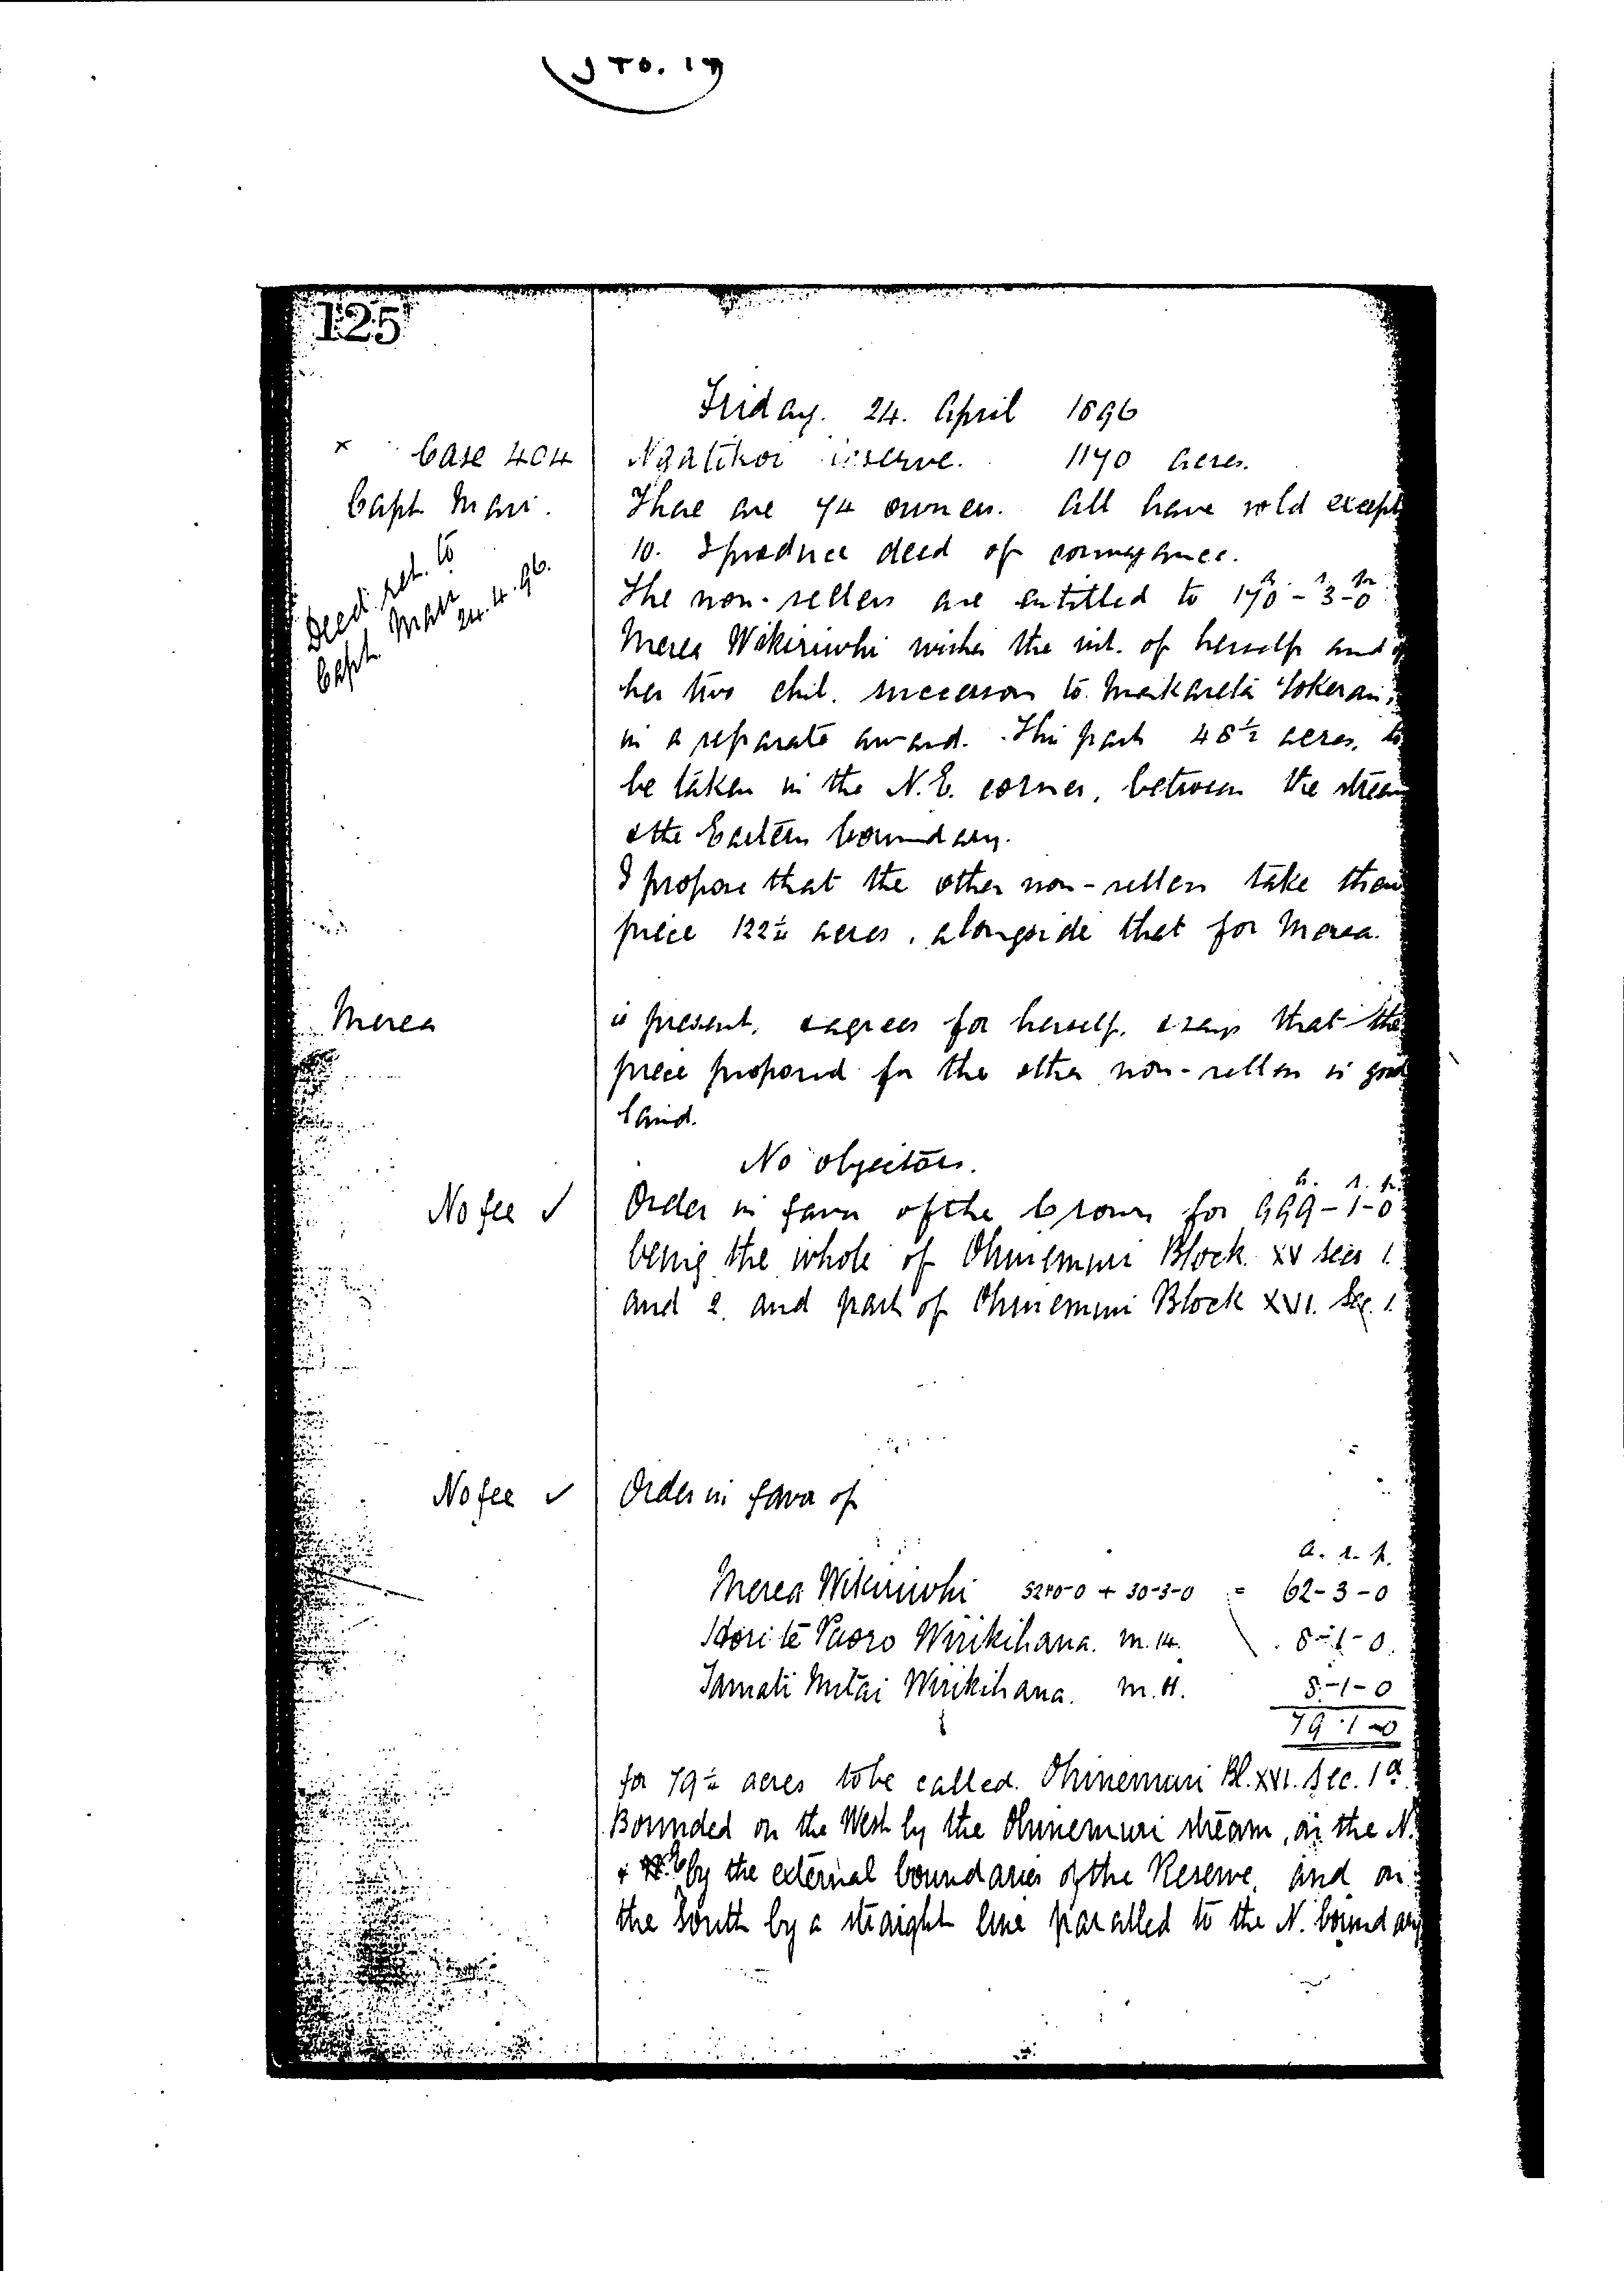 125
Friday. 24. April 1896
x Case 404 Ngatikoi reserve. 1170 acres.
Capt Mair. There are 74 owners. All have sold except
10. I produce deed of conveyance.
Deed ret. to
Capt. Mair
24.4.96.
a. r. p.
The non-sellers are entitled to 170-3-0
Merea Wikiriwhi wishes the int. of herself and of
her two chil. successors to Makareta
in a separate award. This part 48½ acres, to
be taken in the N.E. corner, between the stream
& the Eastern boundary.
I propose that the other non-sellers take their
piece 122¼ acres, alongside that for Merea.
Merea is present, & agrees for herself, & says that the
piece proposed for the other non-sellers is good
land.
No objectors.
a. r. p.
No fee ✓ Order in favor of the Crown for 999-1-0
being the whole of Ohinemuri Block XV Secs 1.
and 2. and part of Ohinemuri Block XVI. Sec. 1.
No fee ✓ Order in favor of
a. r. p.
Merea Wikiriwhi 32-0-0 + 30-3-0 = 62-3-0
Hori te Paoro Wirikihana. m. 14. 8-1-0.
Tamati Mutai Wirikihana. m. 8-1-0
79-1-0
for 79¼ acres to be called Ohinemuri Bl. XVI. Sec. 1a
Bounded on the West by the Ohinemuri stream, on the N.
& E by the external boundaries of the Reserve, and on
the South by a straight line paralled to the N. boundary